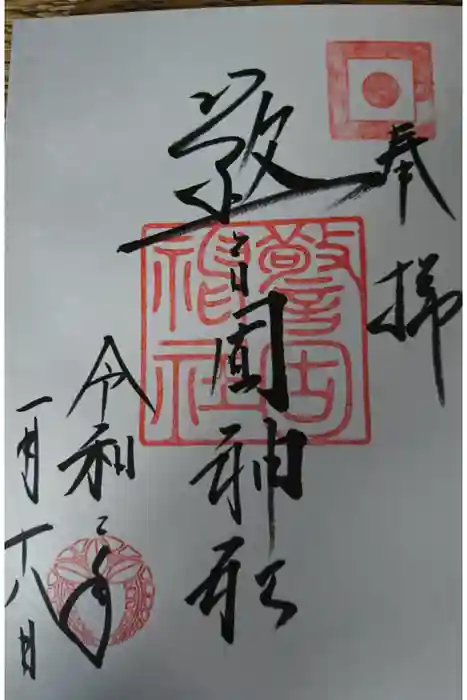 奉拝
警固神社
令和二年
一月十八日
警固神社